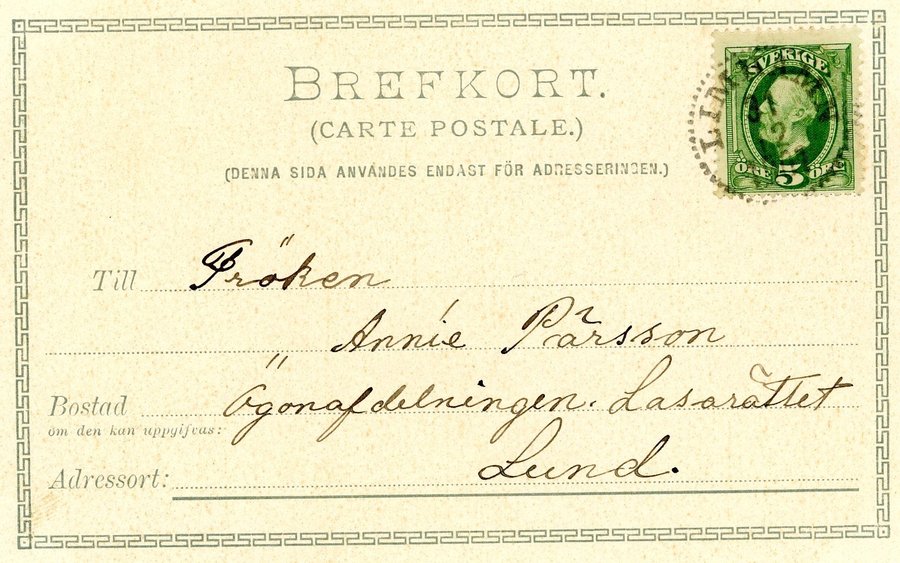 BREFKORT.
(CARTE POSTALE.)
(DENNA SIDA ANVÄNDES ENDAST FÖR ADRESSERINGEN.)
SVERIGE
ÖRE 5 ÖRE
Till Fröken
Annie Pärsson
Bostad Ögonafdelningen. Lasarättet
om den kan uppgifvas:
Lund.
Adressort: